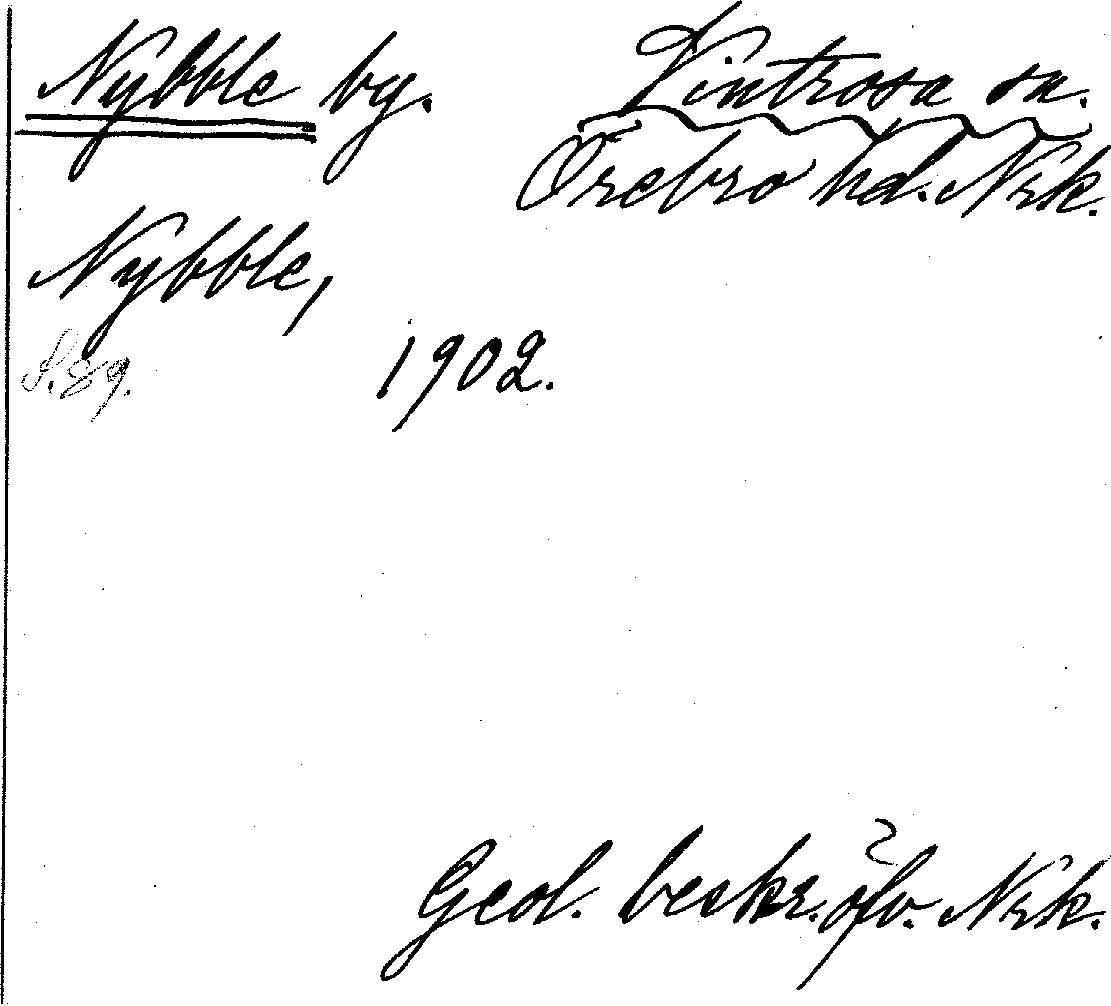 Nybble by.
Vintrosa sn.
Örebro hd. Nrk.
Nybble,
S. 89.
1902.
Geol. beskr. öfv. Nrk.